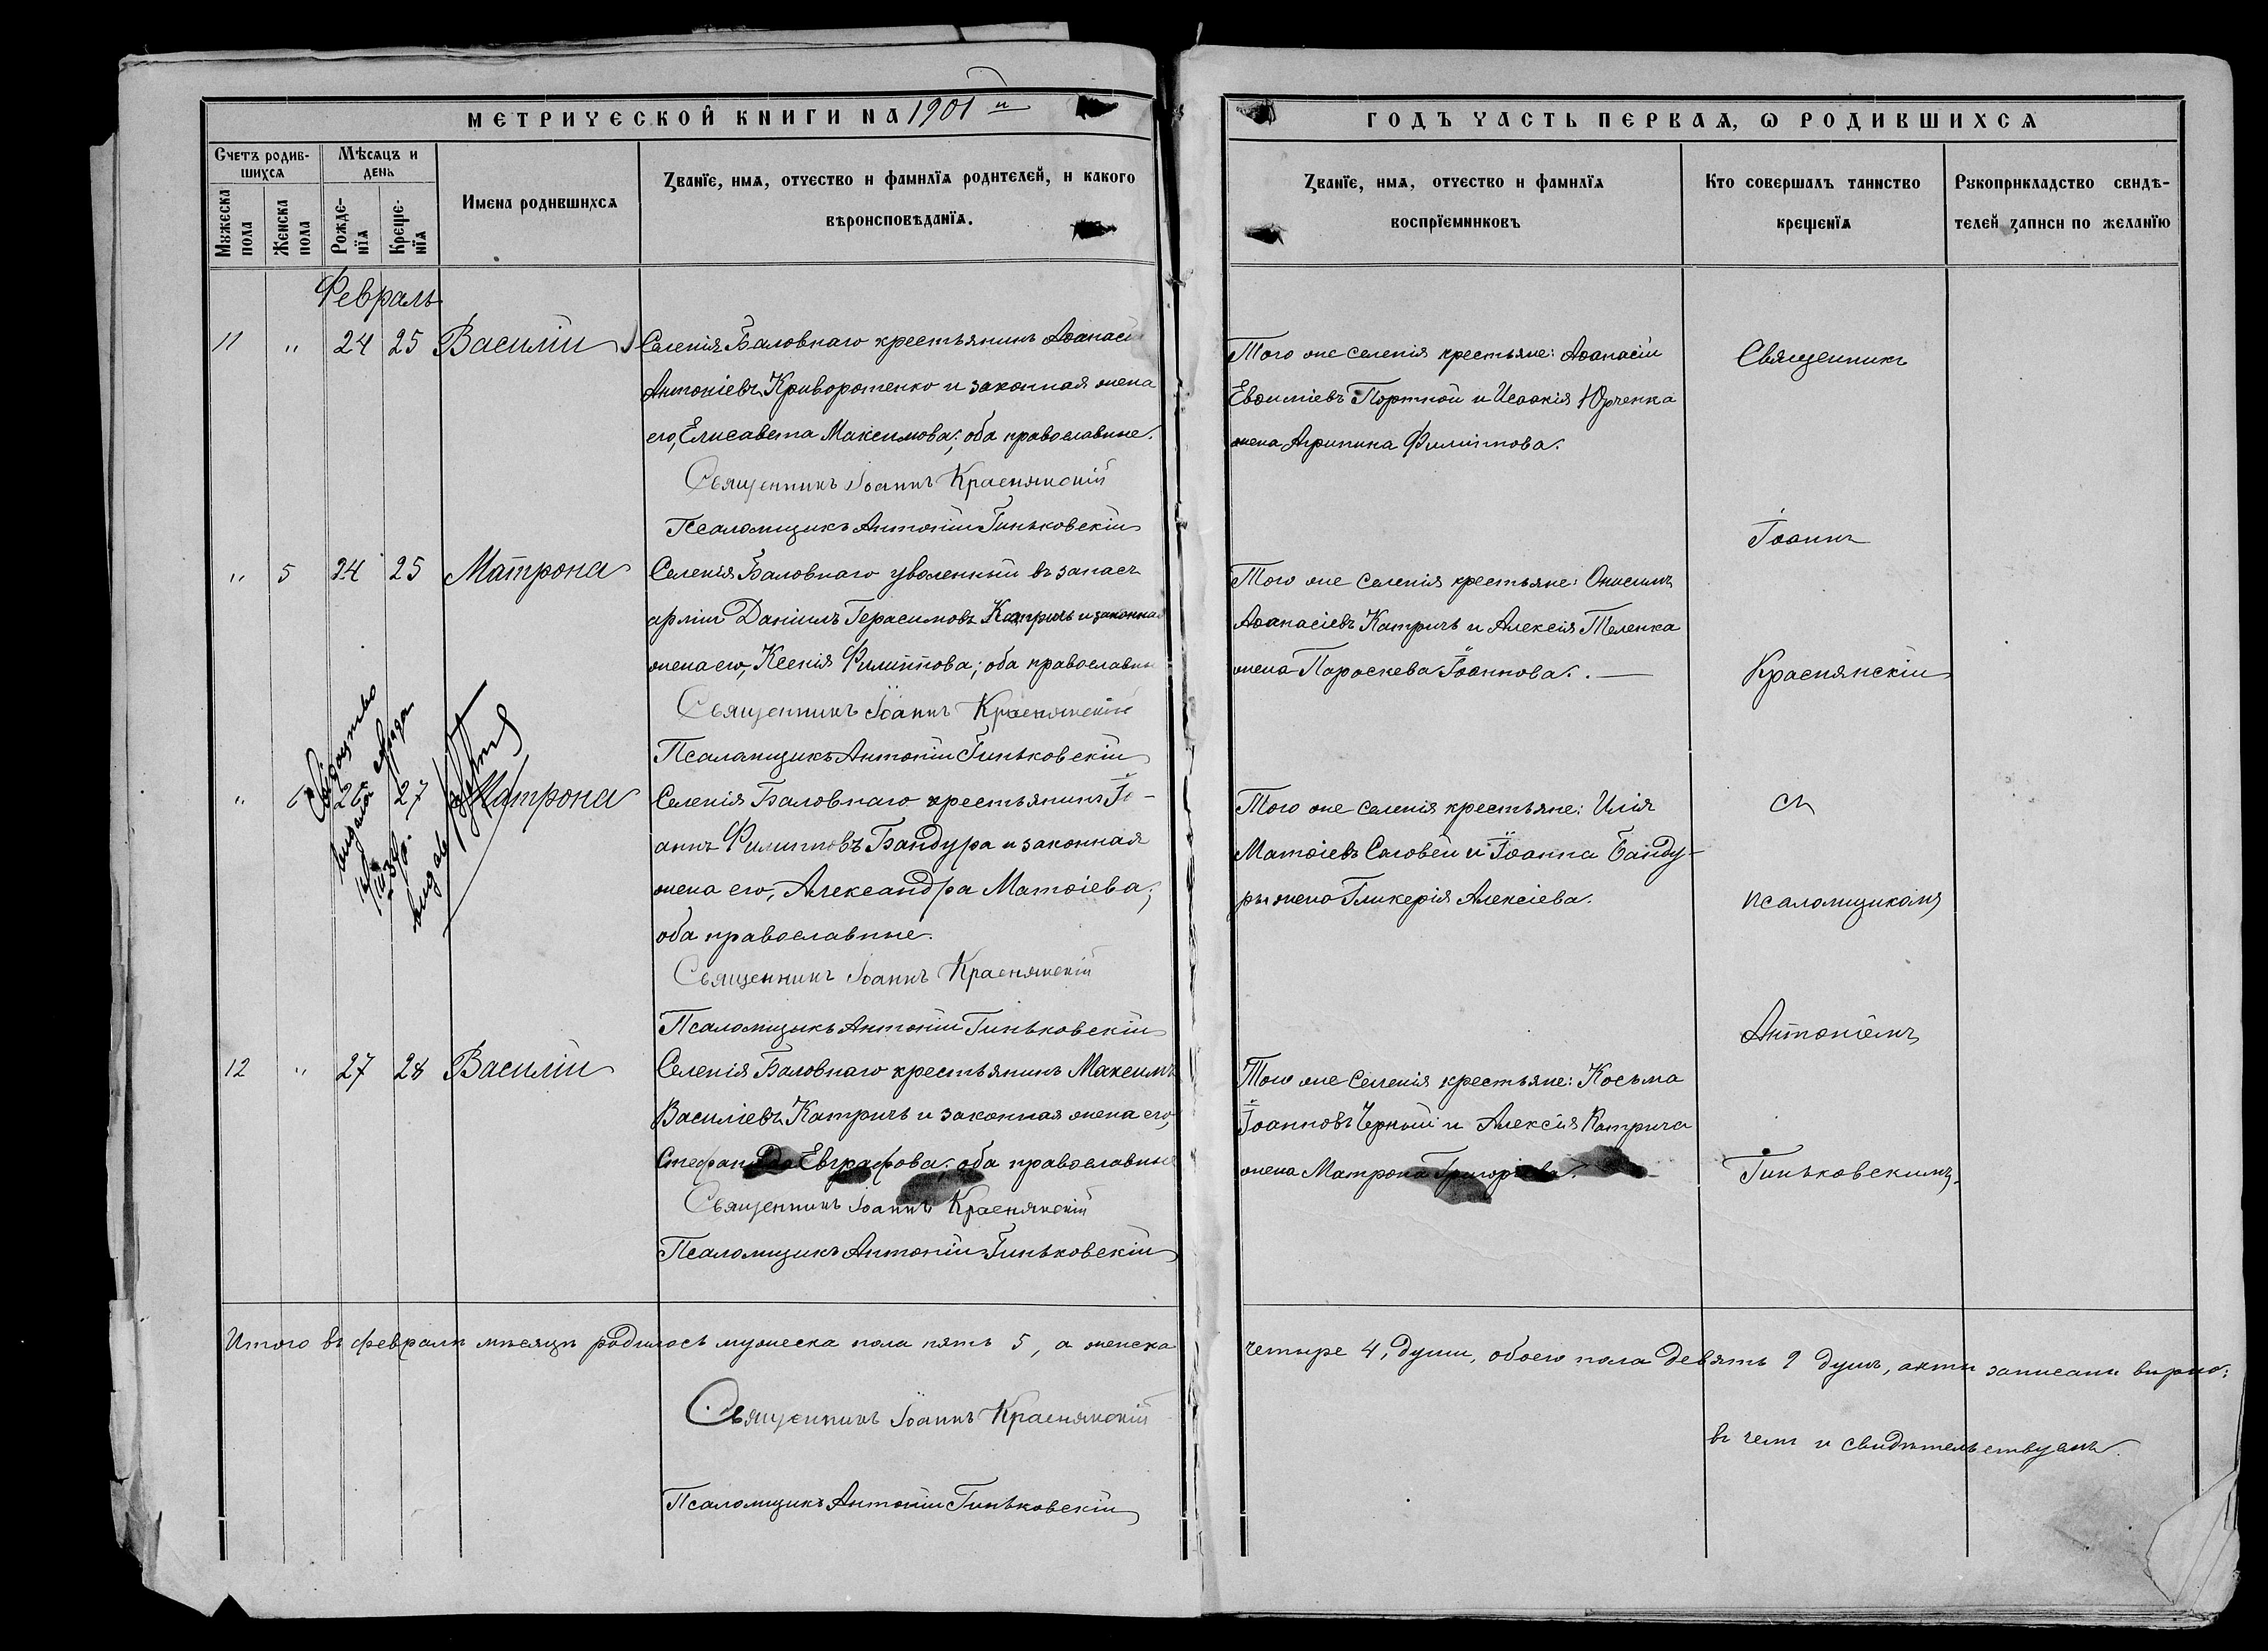 МЕТРИЧЕСКОЙ КНИГИ НА 1901 й
ГОДЪ ЧАСТЬ ПЕРВАѦ, Ѡ РОДИВШИХСѦ
Счетъ родив-
шихсѧ
Мѣсѧцъ и
день
Мужеска
пола
Женска
пола
Рожде-
нїѧ
Креще-
нїѧ
Имена родившихсѧ
Званїе, имѧ, отчество и фамилїѧ родителей, и какого
вѣроисповѣданїѧ.
Званїе, имѧ, отчество и фамилїѧ
воспрїемниковъ
Кто совершалъ таинство
крещенїѧ
Рукоприкладство свидѣ-
телей записи по желанїю
Февраль
11 " 24 25 Василій
Селенія Баловнаго крестьянинъ Аѳанасій
Антоніевъ Криворотенко и законная жена
его, Елисавета Максимова; оба православные.
Священникъ Іоаннъ Краснянскій
Псаломщикъ Антоній Гиньковскій
Того же селенія крестьяне: Аѳанасій
Евѳиміевъ Портной и Исаакія Юрченка
жена Агрипина Филиппова.
" 5 24 25 Матрона
Селенія Баловнаго уволенный въ запасъ
арміи Даніилъ Герасимовъ Катричъ и законная
жена его, Ксенія Филиппова; оба православные
Священникъ Іоаннъ Краснянскій
Псаломщикъ Антоній Гиньковскій
Того же селенія крестьяне: Онисимъ
Аѳанасіевъ Катричъ и Алексія Теленка
жена Параскева Іоаннова. —
" 6 26 27 Матрона
Селенія Баловнаго крестьянинъ Іо-
аннъ Филипповъ Бандура и законная
жена его, Александра Матѳіева;
оба православные.
Священникъ Іоаннъ Краснянскій
Псаломщикъ Антоній Гиньковскій
Того же селенія крестьяне: Илія
Матѳіевъ Соловей и Іоанна Банду-
ры жена Гликерія Алексіева.
12 " 27 28 Василій
Селенія Баловнаго крестьянинъ Максимъ
Василіевъ Катричъ и законная жена его,
Стефанида Евграфова; оба православные
Священникъ Іоаннъ Краснянскій
Псаломщикъ Антоній Гиньковскій
Того же селенія крестьяне: Косьма
Іоанновъ Черный и Алексія Катрича
жена Матрона Григоріева.
Священникъ
Іоаннъ
Краснянскій
съ
псаломщикомъ
Антоніемъ
Гиньковскимъ.
Итого въ февралѣ мѣсяцѣ родилось мужеска пола пять 5, а женска
четыре 4, души, обоего пола девять 9 душъ, акты записаны вѣрно;
въ чемъ и свидѣтельствуемъ.
Священникъ Іоаннъ Краснянскій
Псаломщикъ Антоній Гиньковскій